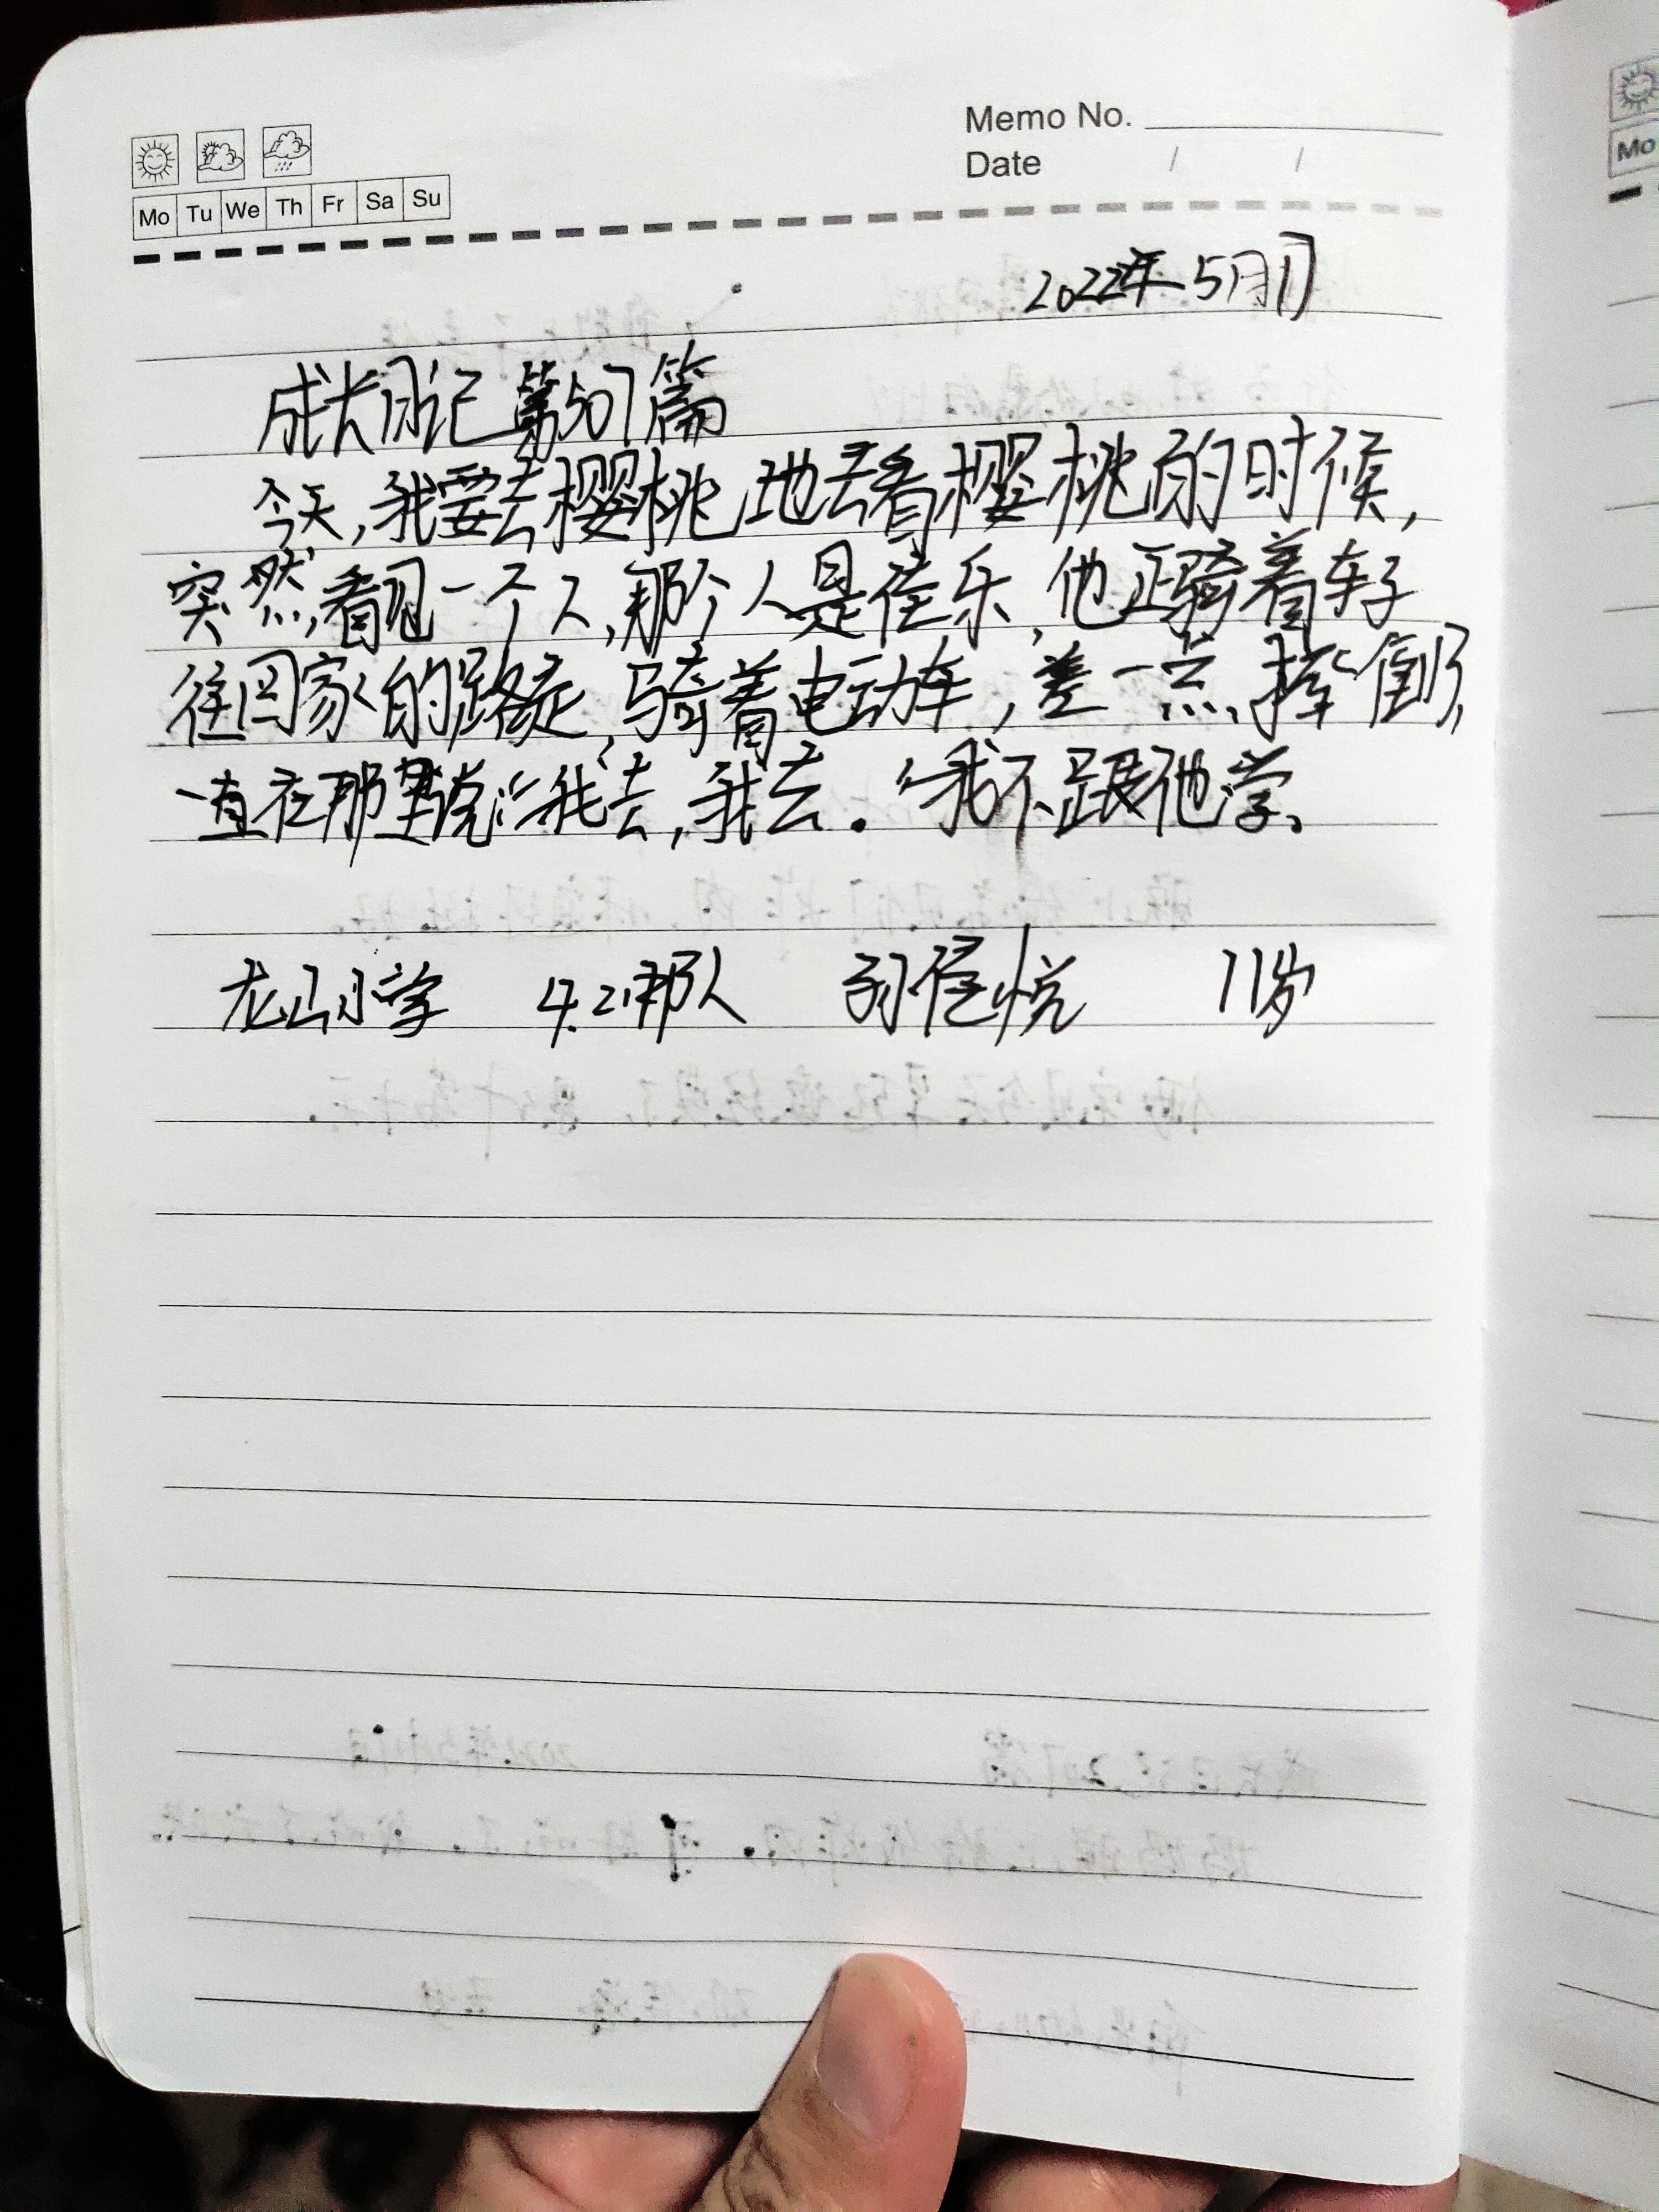 Memo No.
Date / /
Mo Tu We Th Fr Sa Su
2022年5月1日
成长日记 第507篇
今天,我要去樱桃地去看樱桃的时候,
突然,看见一个人,那个人是佳乐,他正骑着车子
往回家的路走,骑着电动车,差一点,摔倒了,
一直在那里说:“我去,我去。“我不跟他学。
龙山小学 4.2 那人 孙佳悦 11岁
Mo